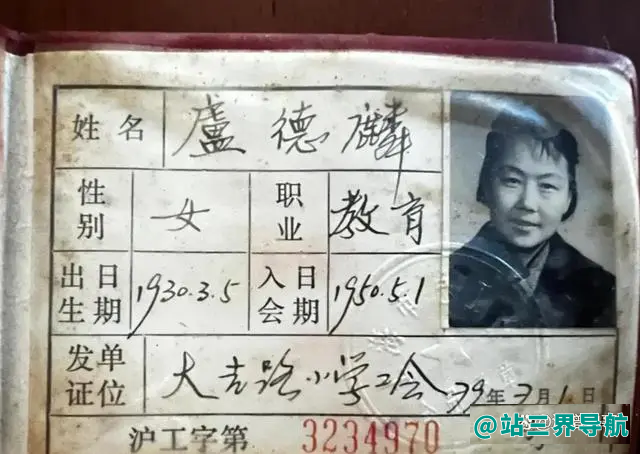 姓名 盧德麟
性别 女 职业 教育
出生日期 1930.3.5 入会日期 1950.5.1
发证单位 大吉路小学工会 79年3月1日
沪工字第 3234970 号
@站三界导航